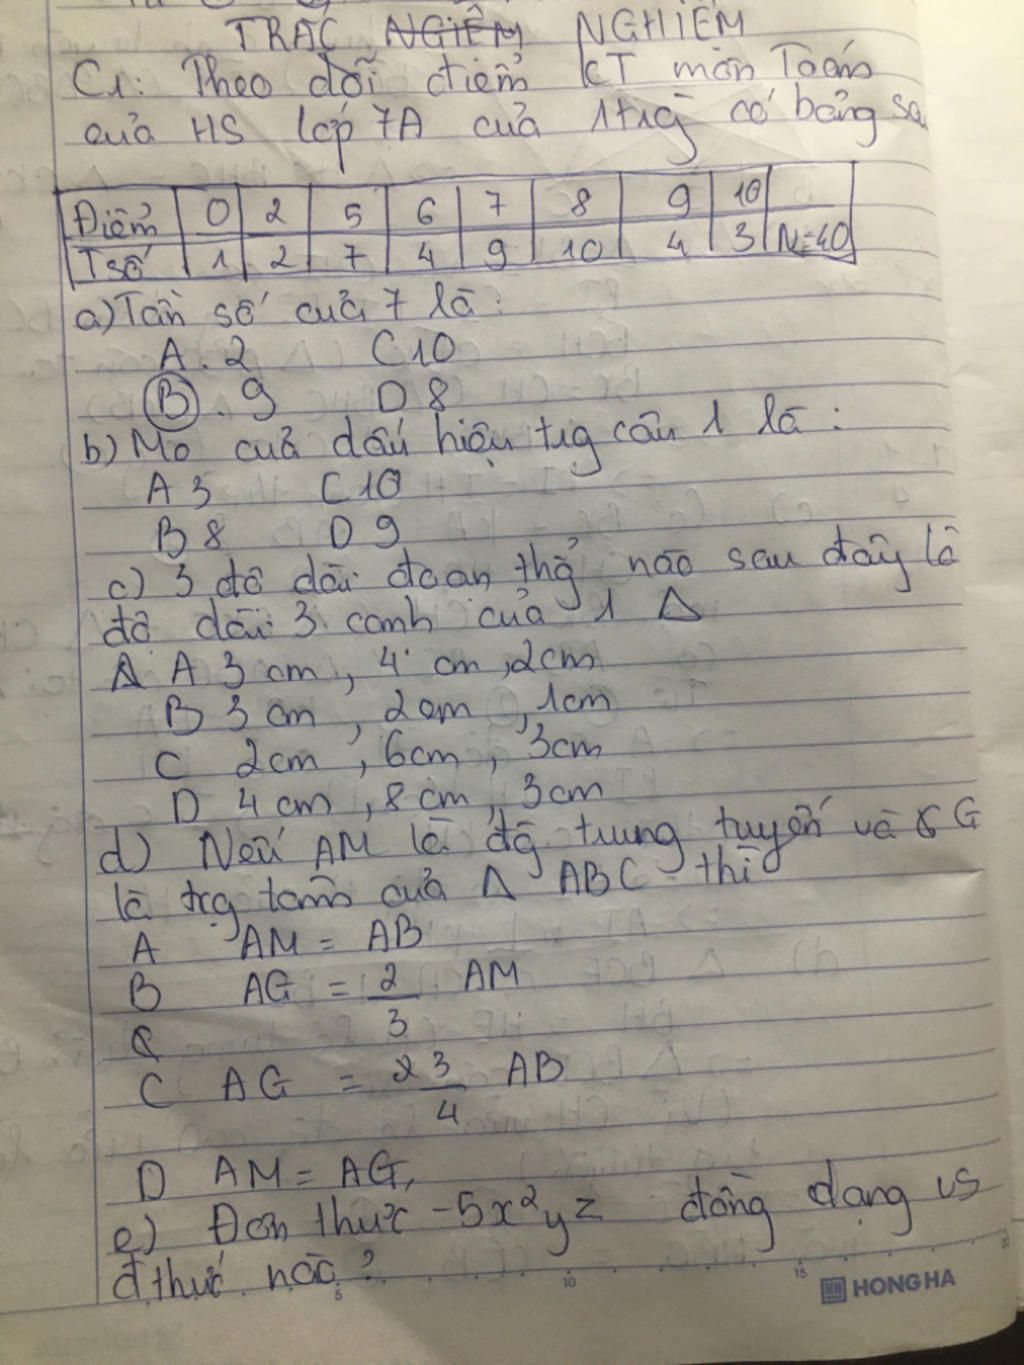 TRẮC NGIỆM NGHIỆM
C1: Theo dõi điểm KT môn Toán
của HS lớp 7A của 1 trg có bảng sa
Điểm 0 2 5 6 7 8 9 10
T số 1 2 7 4 9 10 4 3 N=40
a) Tần số của 7 là:
A. 2 C 10
B. 9 D 8
b) Mo của dấu hiệu trg câu 1 là:
A 3 C 10
B 8 D 9
c) 3 độ dài đoạn thẳg nào sau đây là
độ dài 3 cạnh của 1 Δ
A A 3 cm, 4 cm, 2cm
B 3 cm, 2cm, 1cm
C 2cm, 6cm, 3cm
D 4 cm, 8 cm, 3cm
d) Nếu AM là đg trung tuyến và G
là trg tâm của Δ ABC thì
A AM = AB
B AG = 2/3 AM
C AG = 3/4 AB
D AM = AG,
e) Đơn thức -5x²yz đồng dạng vs
đ thức nào?
5 10 15
HH HONG HA